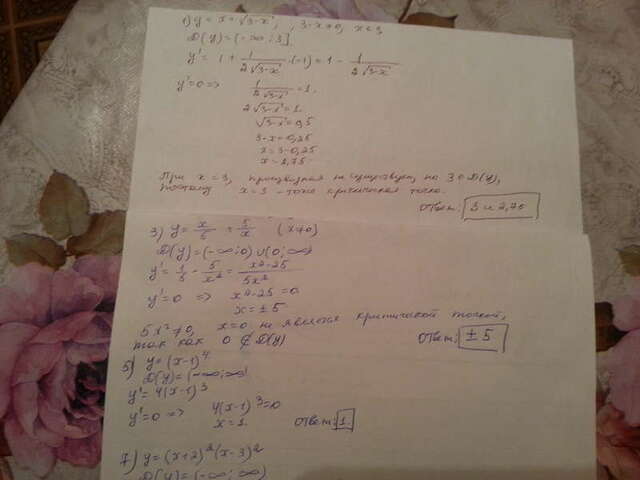 1) y = x + √3-x, 3-x≥0, x≤3
D(y) = (-∞; 3].
y' = 1 + 1/(2√3-x) · (-1) = 1 - 1/(2√3-x)
y'=0 => 1/(2√3-x) = 1.
2√3-x = 1.
√3-x = 0,5
3-x = 0,25
x = 3-0,25
x = 2,75
При x = 3, производная не существует, но 3 ∈ D(y),
поэтому x = 3 - тоже критическая точка.
Ответ: 3 и 2,75
3) y = x/5 + 5/x (x≠0)
D(y) = (-∞; 0) ∪ (0; ∞)
y' = 1/5 - 5/x² = (x²-25)/5x²
y'=0 => x²-25 = 0
x = ±5
5x²≠0, x=0 не является критической точкой,
так как 0 ∉ D(y)
Ответ: ±5
5) y = (x-1)⁴
D(y) = (-∞; ∞)
y' = 4(x-1)³
y'=0 => 4(x-1)³=0
x = 1.
Ответ: 1.
7) y = (x+2)²(x-3)²
D(y) = (-∞; ∞)